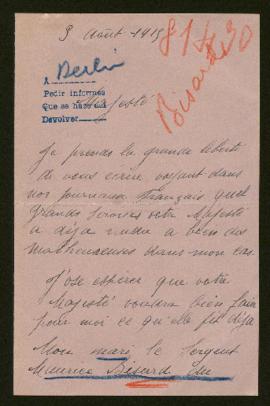 9 Août 1915
81430
Bisard
A Berlin
Pedir informes
Que se hace
Devolver
Majesté
Je prends la grande liberté
de vous écrire voyant dans
nos journaux français quel
grands services votre Majesté
a déja rendu a bien des
malheureuses dans mon cas.
J'ose espérer que votre
Majesté voudra bien faire
pour moi ce qu'elle fit déja
Mon mari le sergent
Maurice Bisard du